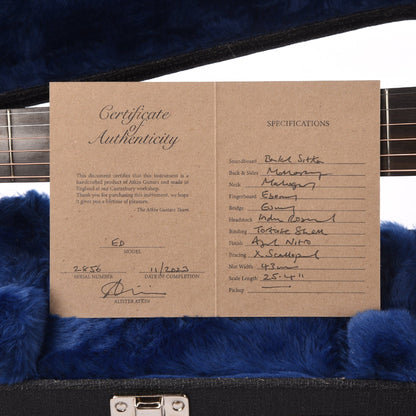 Certificate
of
Authenticity
This document certifies that this instrument is a
handcrafted product of Atkin Guitars and made in
England at our Canterbury workshop.
Thank you for purchasing this instrument, we hope
it gives you a lifetime of pleasure.
- The Atkin Guitars Team
ED
MODEL
2856 11/2023
SERIAL NUMBER DATE OF COMPLETION
ALISTER ATKIN
SPECIFICATIONS
Soundboard Baked Sitka
Back & Sides Mahogany
Neck Mahogany
Fingerboard Ebony
Bridge Ebony
Headstock Indian Rosewood
Binding Tortoise Shell
Finish Aged Nitro
Bracing X Scalloped
Nut Width 43mm
Scale Length 25.4"
Pickup —